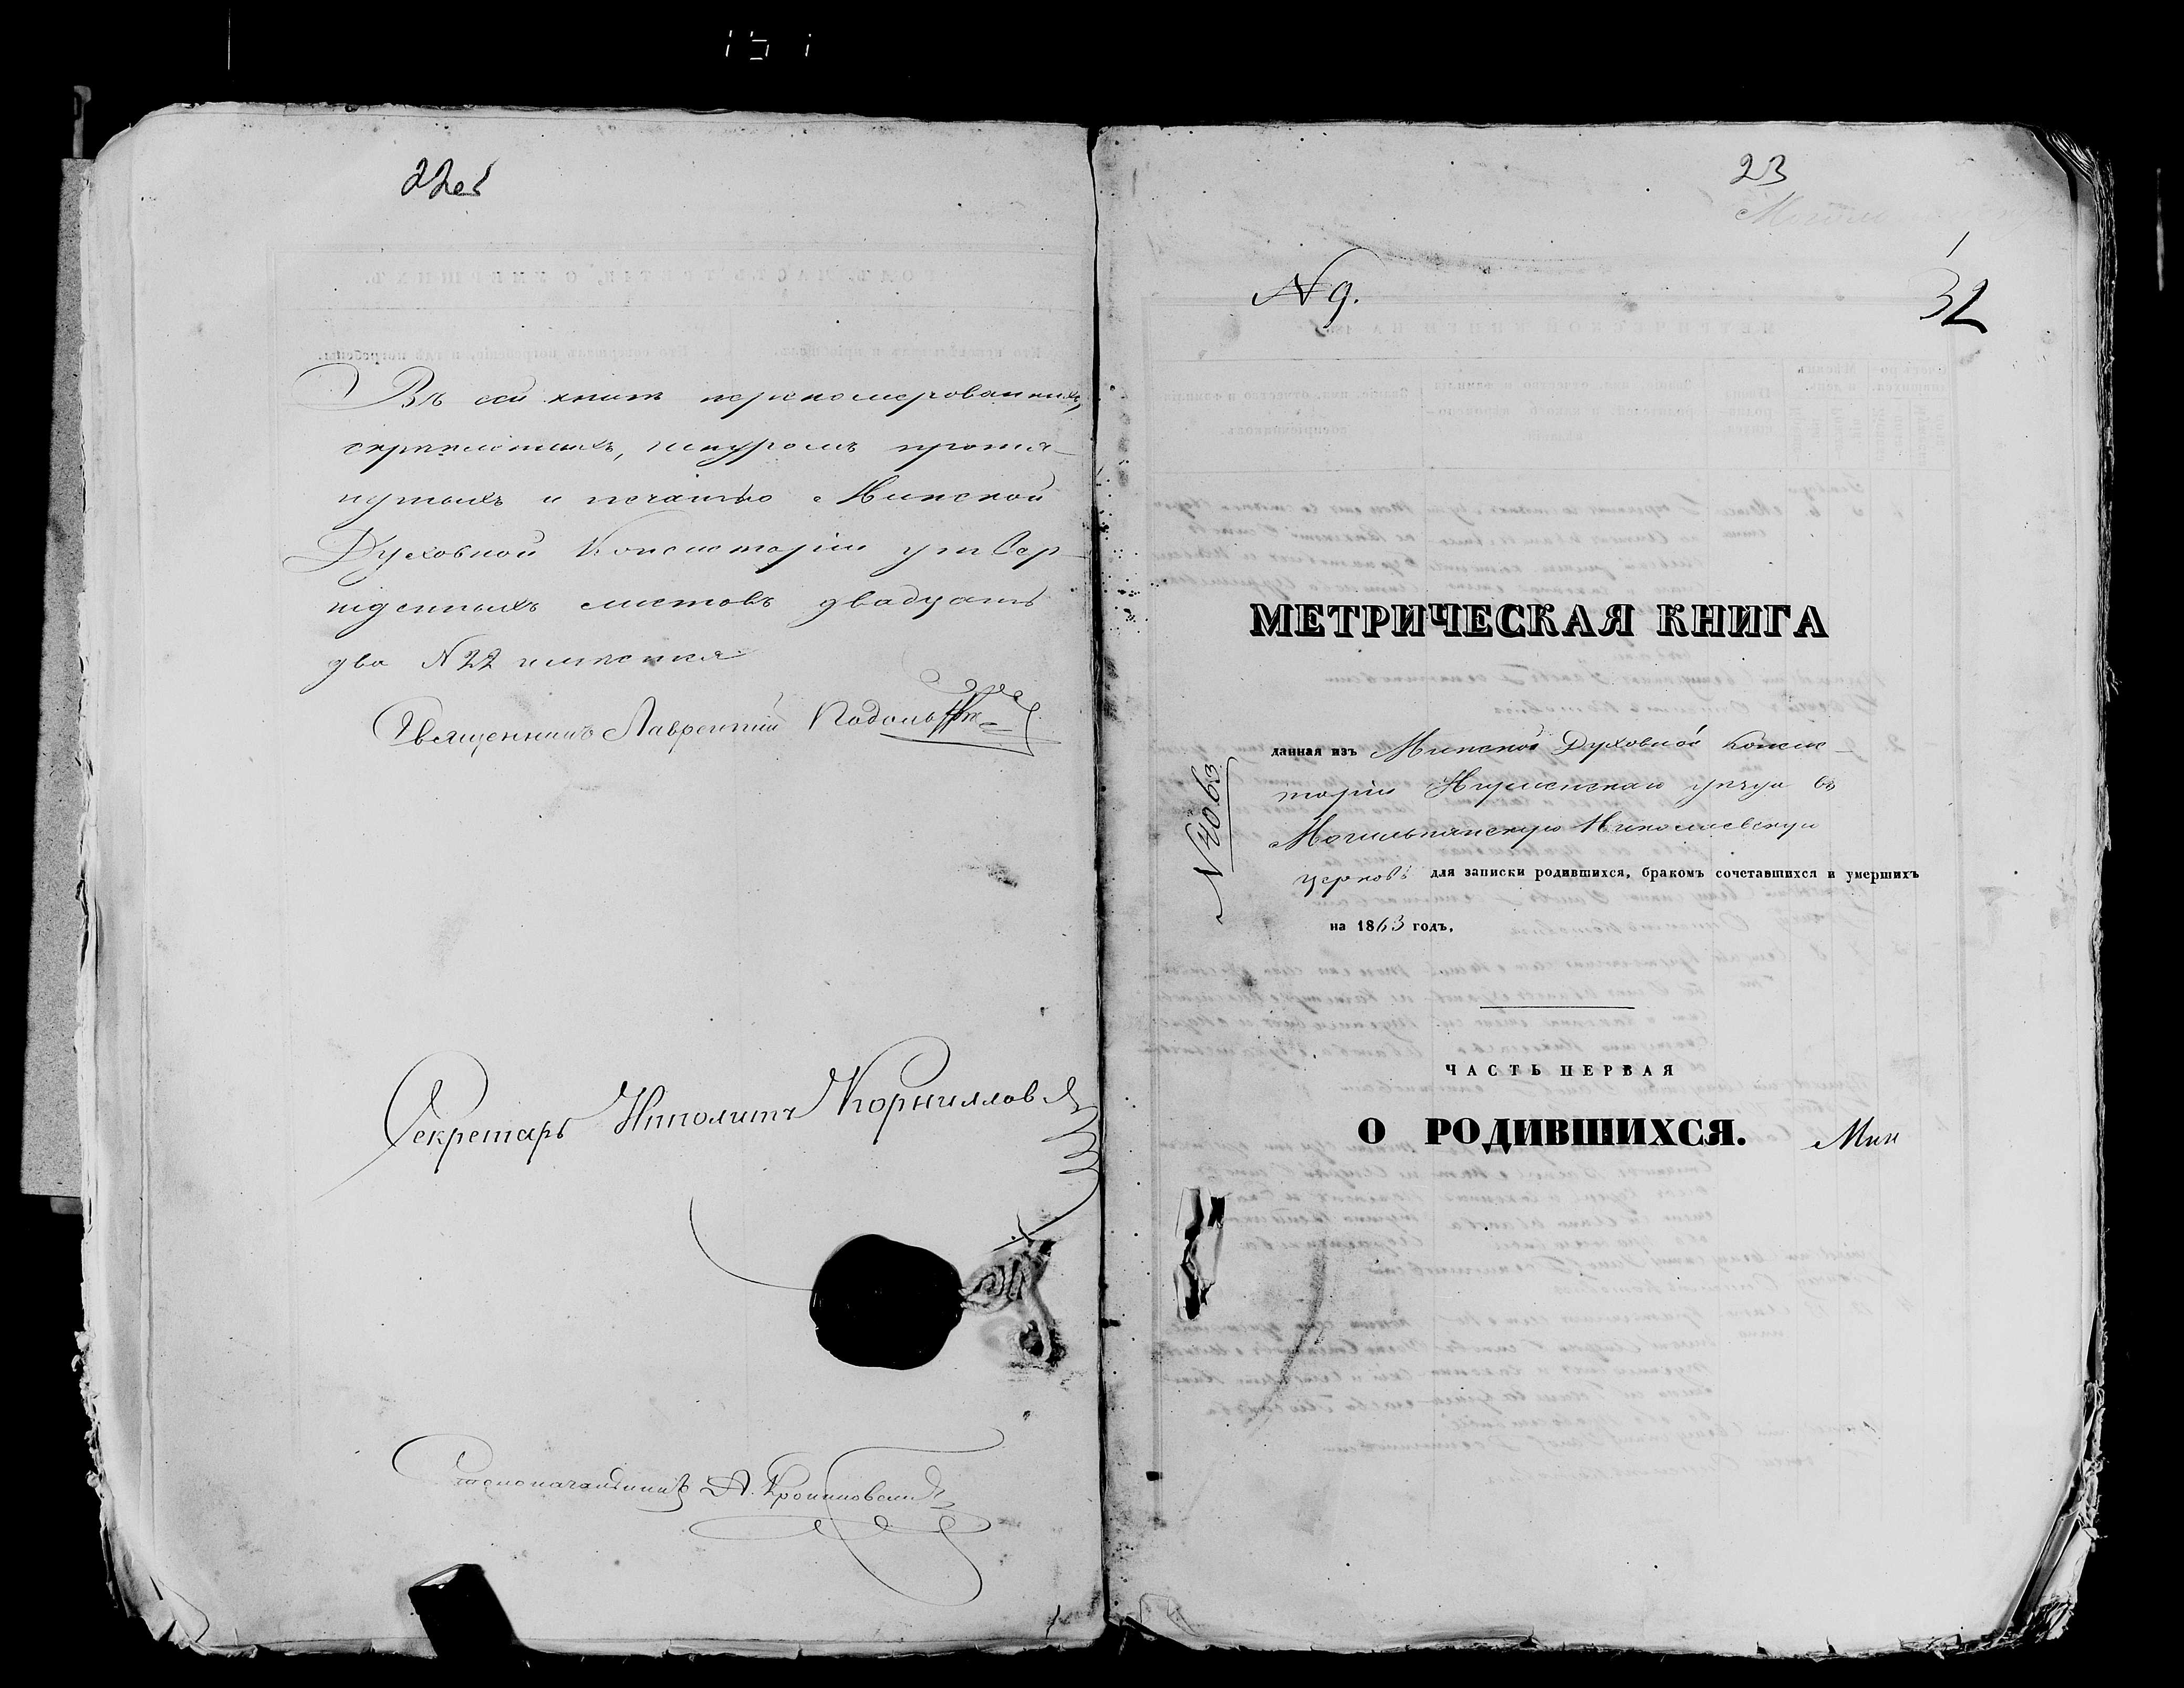 22об
Въ сей книгѣ перенумерованныхъ,
скрѣпленныхъ, шнуромъ протя-
нутыхъ и печатью Минской
Духовной Консисторіи утвер-
жденныхъ листовъ двадцать
два N 22 имѣется
Священникъ Лаврентій
Секретарь Ипполитъ Корниллов
Столоначальникъ А.
23
N 9.
32
МЕТРИЧЕСКАЯ КНИГА
N 4063
данная изъ Минской Духовной Консис-
торіи Игуменскаго уѣзда въ
Могильнянскую Николаевскую
церковь для записки родившихся, бракомъ сочетавшихся и умершихъ
на 1863 годъ.
ЧАСТЬ ПЕРВАЯ
О РОДИВШИХСЯ.
Мин